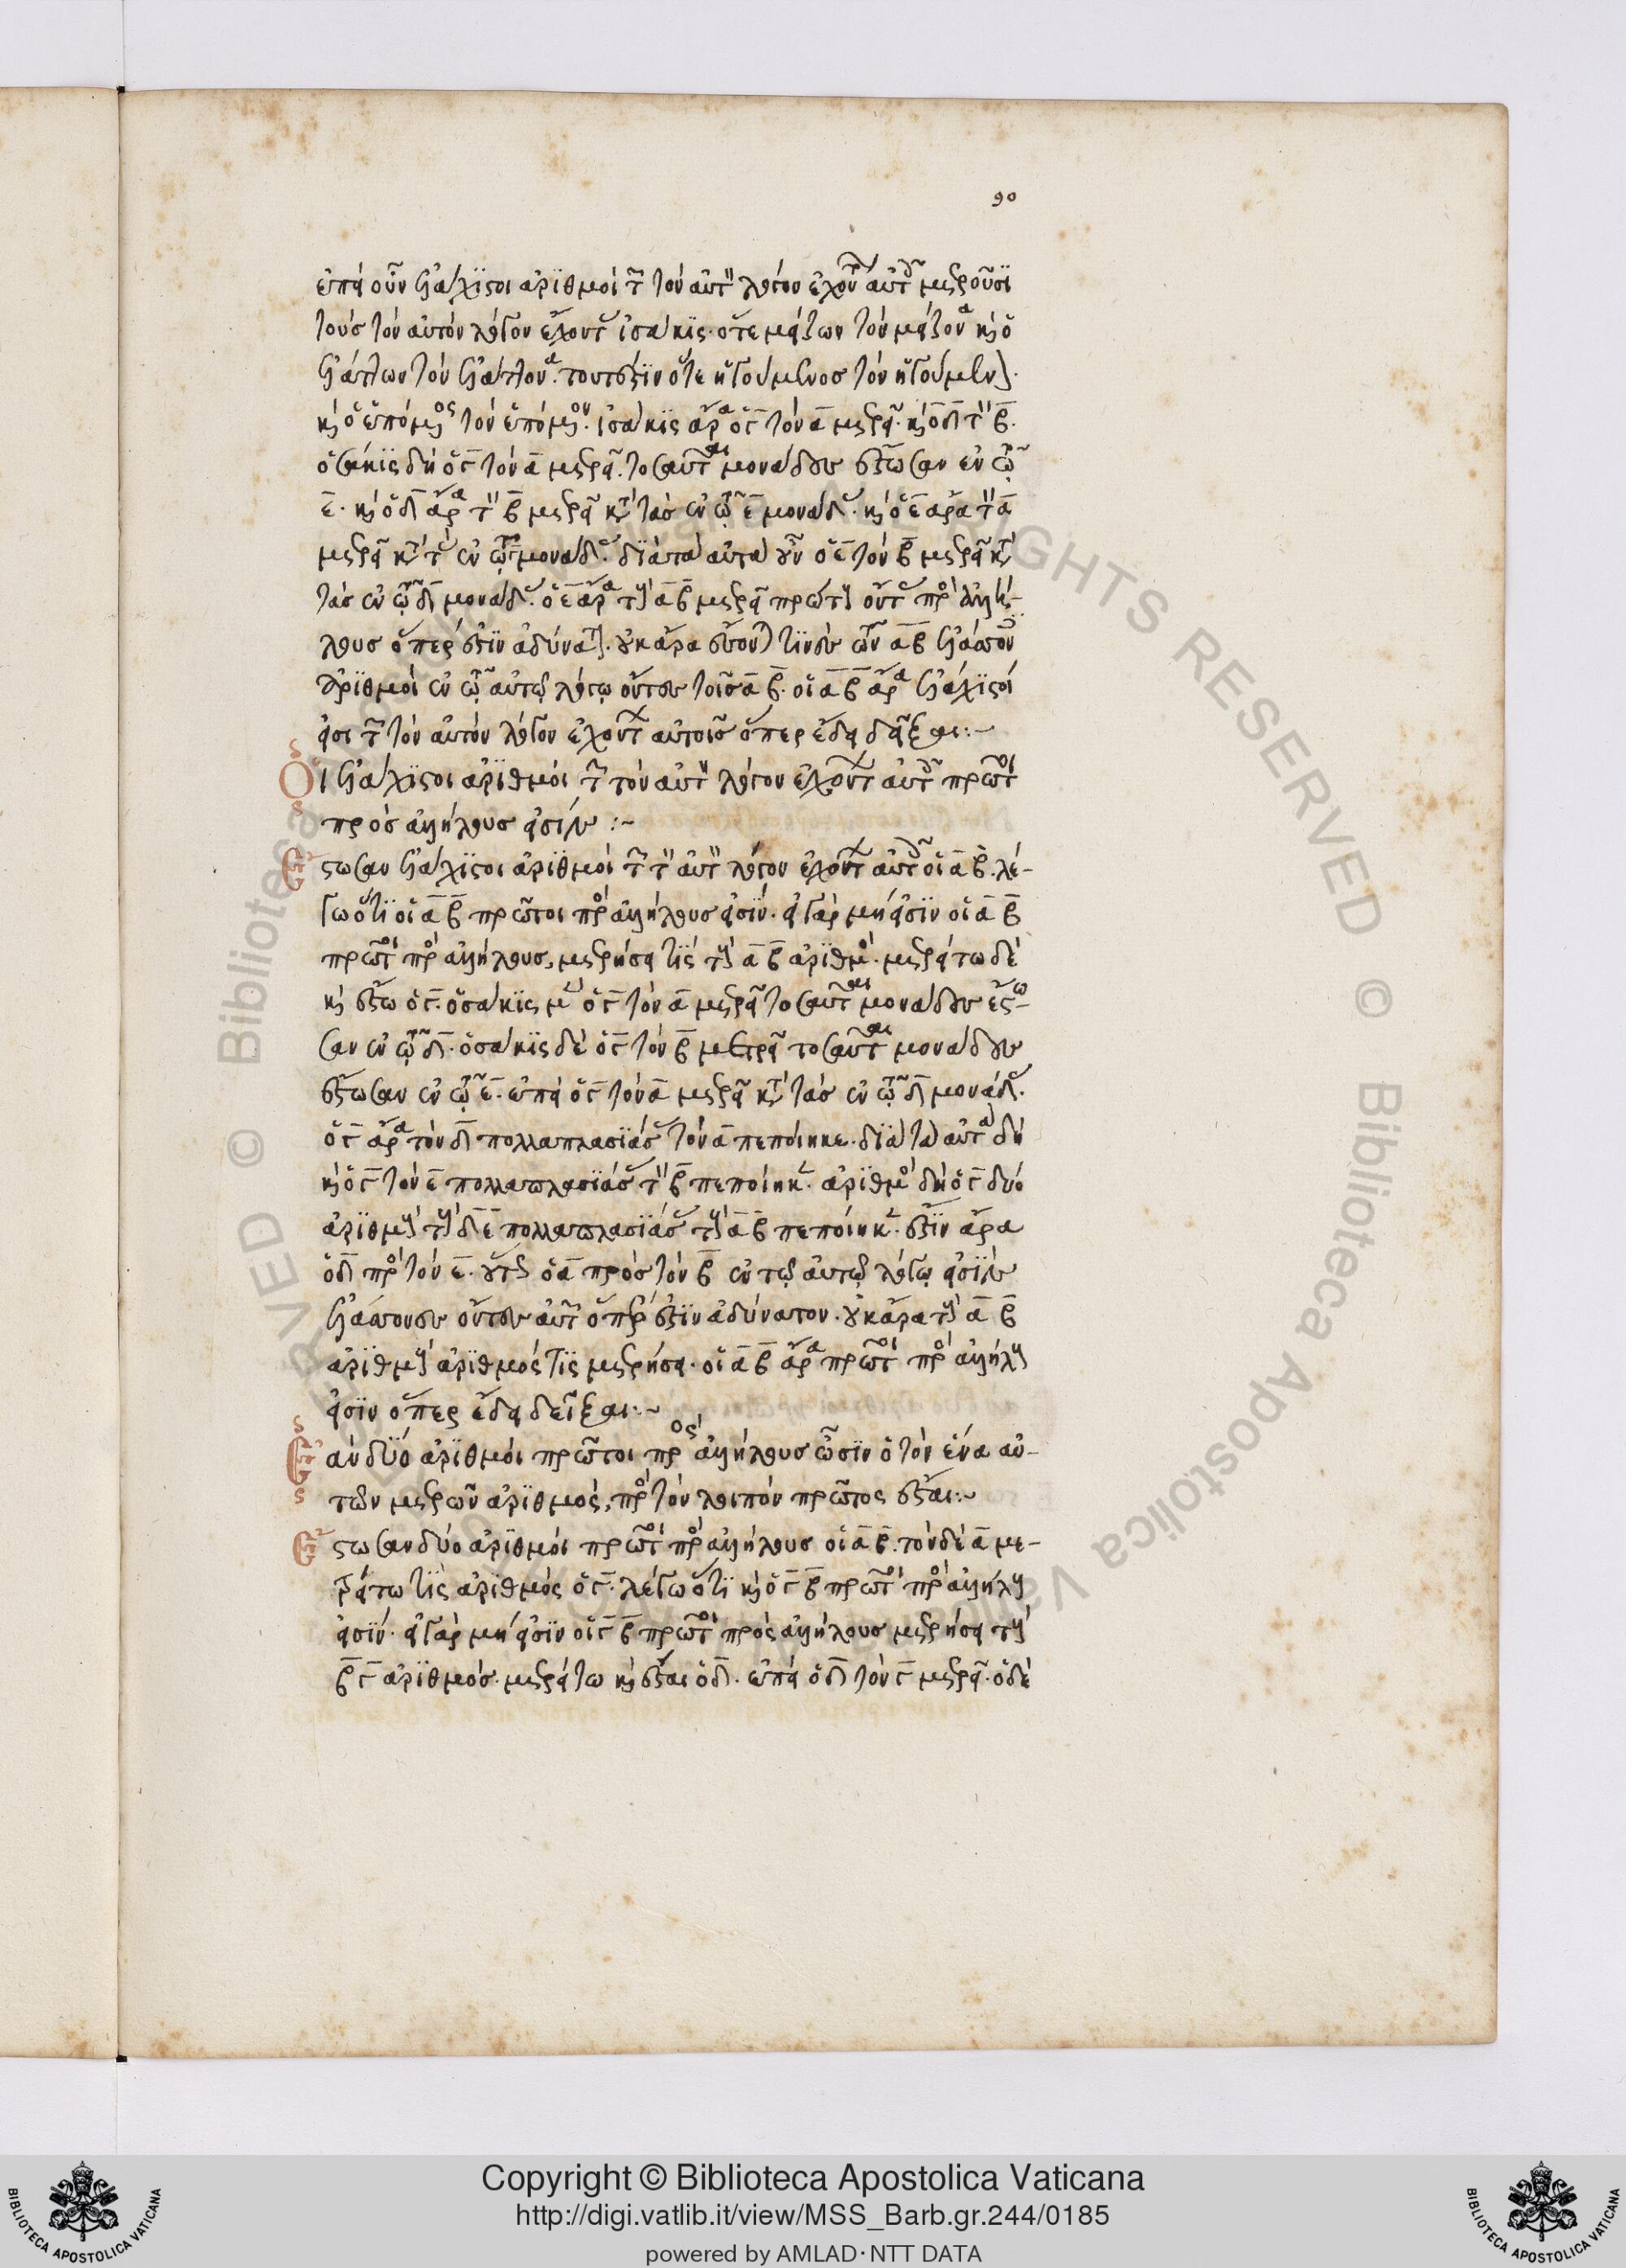 90
ἐπεὶ οὖν ἐλάχιστοι ἀριθμοὶ τῶν τὸν αὐτὸν λόγον ἐχόντων αὐτοῖς μετροῦσι
τοὺς τὸν αὐτὸν λόγον ἔχοντας ἰσάκις. ὅτε μείζων τὸν μείζονα καὶ ὁ
ἐλάττων τὸν ἐλάττονα. τουτέστιν ὅτε ἡγούμενος τὸν ἡγούμενον.
καὶ ὁ ἑπόμενος τὸν ἑπόμενον. ἰσάκις ἄρα ὁ γ τὸν α μετρεῖ. καὶ ὁ δ τὸν β.
ὁσάκις δὴ ὁ γ τὸν α μετρεῖ. τοσαῦται μονάδες ἔστωσαν ἐν τῷ
ε. καὶ ὁ δ ἄρα τὸν β μετρεῖ κατὰ τὰς ἐν τῷ ε μονάδας. καὶ ὁ ε ἄρα τὸν α
μετρεῖ κατὰ τὰς ἐν τῷ γ μονάδας. διὰ τὰ αὐτὰ οὖν ὁ ε τὸν β μετρεῖ κατὰ
τὰς ἐν τῷ δ μονάδας. ὁ ε ἄρα τοὺς α β μετρεῖ πρώτους ὄντας πρὸς ἀλλή-
λους ὅπερ ἐστὶν ἀδύνατον. οὐκ ἄρα ἔσονταί τινες τῶν α β ἐλάσσονες
ἀριθμοὶ ἐν τῷ αὐτῷ λόγῳ ὄντες τοῖς α β. οἱ α β ἄρα ἐλάχιστοί
εἰσι τῶν τὸν αὐτὸν λόγον ἐχόντων αὐτοῖς ὅπερ ἔδει δεῖξαι:~
Οἱ ἐλάχιστοι ἀριθμοὶ τῶν τὸν αὐτὸν λόγον ἐχόντων αὐτοῖς πρῶτοι
πρὸς ἀλλήλους εἰσίν :~
Ἔστωσαν ἐλάχιστοι ἀριθμοὶ τῶν τὸν αὐτὸν λόγον ἐχόντων αὐτοῖς οἱ α β. λέ-
γω ὅτι οἱ α β πρῶτοι πρὸς ἀλλήλους εἰσίν. εἰ γὰρ μή εἰσιν οἱ α β
πρῶτοι πρὸς ἀλλήλους, μετρήσει τις τοὺς α β ἀριθμός. μετρείτω δὲ
καὶ ἔστω ὁ γ. ὁσάκις μὲν ὁ γ τὸν α μετρεῖ τοσαῦται μονάδες ἔστω-
σαν ἐν τῷ δ. ὁσάκις δὲ ὁ γ τὸν β μετρεῖ τοσαῦται μονάδες
ἔστωσαν ἐν τῷ ε. ἐπεὶ ὁ γ τὸν α μετρεῖ κατὰ τὰς ἐν τῷ δ μονάδας.
ὁ γ ἄρα τὸν δ πολλαπλασιάσας τὸν α πεποίηκε. διὰ τὰ αὐτὰ δὴ
καὶ ὁ γ τὸν ε πολλαπλασιάσας τὸν β πεποίηκεν. ἀριθμὸς δὴ ὁ γ δύο
ἀριθμοὺς τοὺς δ ε πολλαπλασιάσας τοὺς α β πεποίηκεν. ἔστιν ἄρα
ὁ δ πρὸς τὸν ε. οὕτως ὁ α πρὸς τὸν β ἐν τῷ αὐτῷ λόγῳ εἰσὶν
ἐλάσσονες ὄντες αὐτῶν ὅπερ ἐστὶν ἀδύνατον. οὐκ ἄρα τοὺς α β
ἀριθμοὺς ἀριθμός τις μετρήσει. οἱ α β ἄρα πρῶτοι πρὸς ἀλλήλους
εἰσιν ὅπερ ἔδει δεῖξαι:~
Ἐὰν δύο ἀριθμοὶ πρῶτοι πρὸς ἀλλήλους ὦσιν ὁ τὸν ἕνα αὐ-
τῶν μετρῶν ἀριθμός, πρὸς τὸν λοιπὸν πρῶτος ἔσται:~
Ἔστωσαν δύο ἀριθμοὶ πρῶτοι πρὸς ἀλλήλους οἱ α β. τὸν δὲ α με-
τρείτω τις ἀριθμὸς ὁ γ. λέγω ὅτι καὶ ὁ γ β πρῶτοι πρὸς ἀλλήλους
εἰσίν. εἰ γὰρ μή εἰσιν οἱ γ β πρῶτοι πρὸς ἀλλήλους μετρήσει τοὺς
β γ ἀριθμός. μετρείτω καὶ ἔσται ὁ δ. ἐπεὶ ὁ δ τὸν γ μετρεῖ. ὁ δὲ
© Biblioteca Apostolica Vaticana ALL RIGHTS RESERVED
Copyright © Biblioteca Apostolica Vaticana
http://digi.vatlib.it/view/MSS_Barb.gr.244/0185
powered by AMLAD·NTT DATA
BIBLIOTECA APOSTOLICA VATICANA
BIBLIOTECA APOSTOLICA VATICANA